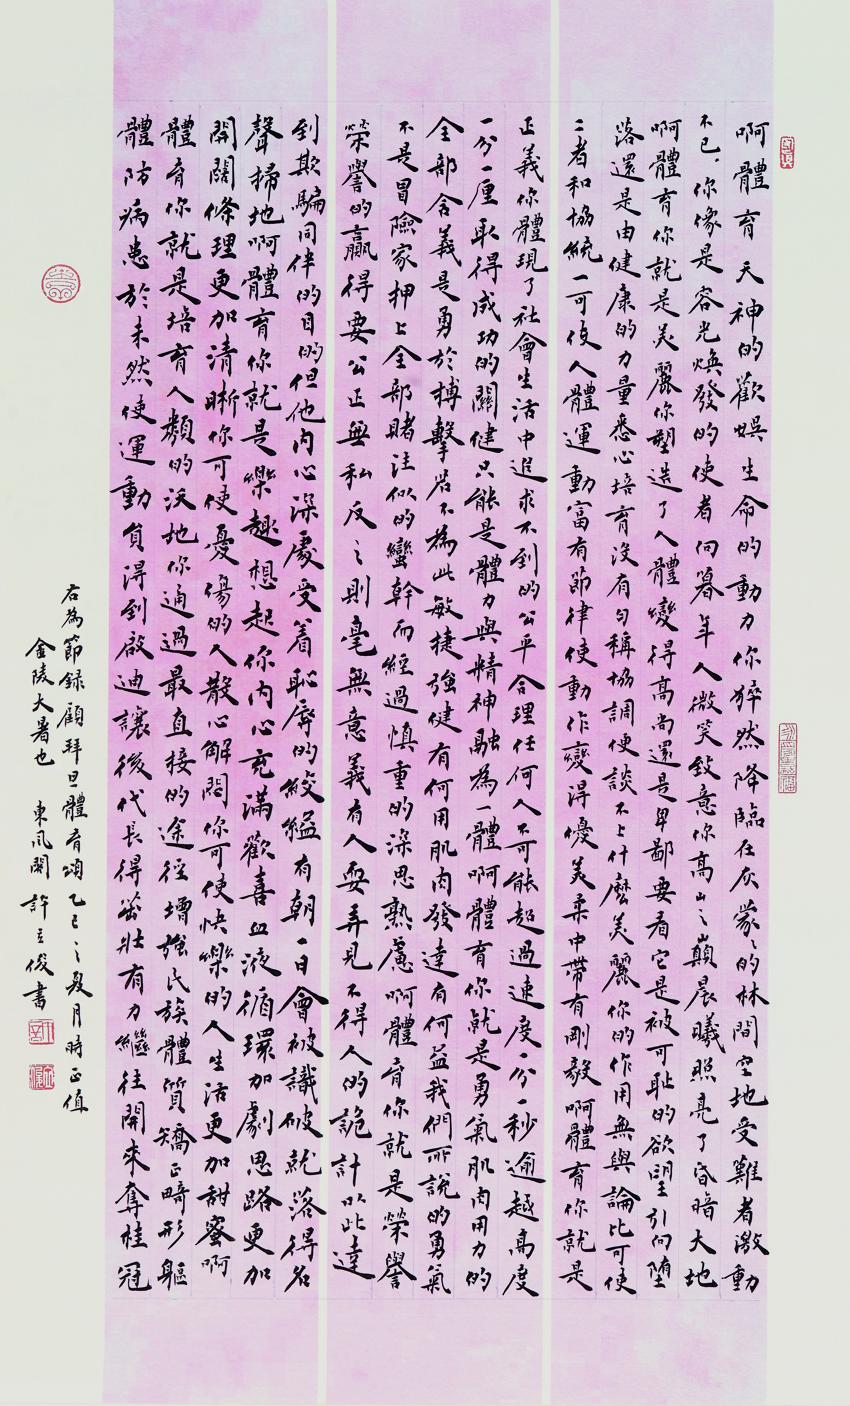 啊體育天神的歡娛生命的動力你猝然降臨在灰蒙蒙的林間空地受難者激動
不已你像是容光煥發的使者向暮年人微笑致意你高山之巔晨曦照亮了昏暗大地
啊體育你就是美麗你塑造了人體變得高尚還是卑鄙要看它是被可恥的欲望引向墮
落還是由健康的力量悉心培育沒有匀稱協調便談不上什麼美麗你的作用無與論比可使
二者和協統一可使人體運動富有節律使動作變得優美柔中帶有剛毅啊體育你就是
正義你體現了社會生活中追求不到的公平合理任何人不可能超過速度一分一秒逾越高度
一分一厘取得成功的關健只能是體力與精神融為一體啊體育你就是勇氣肌肉用力的
全部含義是勇於搏擊若不為此敏捷強健有何用肌肉發達有何益我們所說的勇氣
不是冒險家押上全部賭注似的蠻幹而經過慎重的深思熟慮啊體育你就是榮譽
榮譽的贏得要公正無私反之則毫無意義有人耍弄見不得人的詭計以此達
到欺騙同伴的目的但他内心深處受着恥辱的絞縊有朝一日會被識破就落得名
聲掃地啊體育你就是樂趣想起你内心充滿歡喜血液循環加劇思路更加
開闊條理更加清晰你可使憂傷的人散心解悶你可使快樂的人生活更加甜蜜啊
體育你就是培育人類的沃地你通過最直接的途徑增強民族體質矯正畸形軀
體防病患於未然使運動員得到啟迪讓後代長得茁壯有力繼往開來奪桂冠
右為節録顧拜旦體育頌乙巳之夏月時正值
金陵大暑也 東風閣 許立俊書